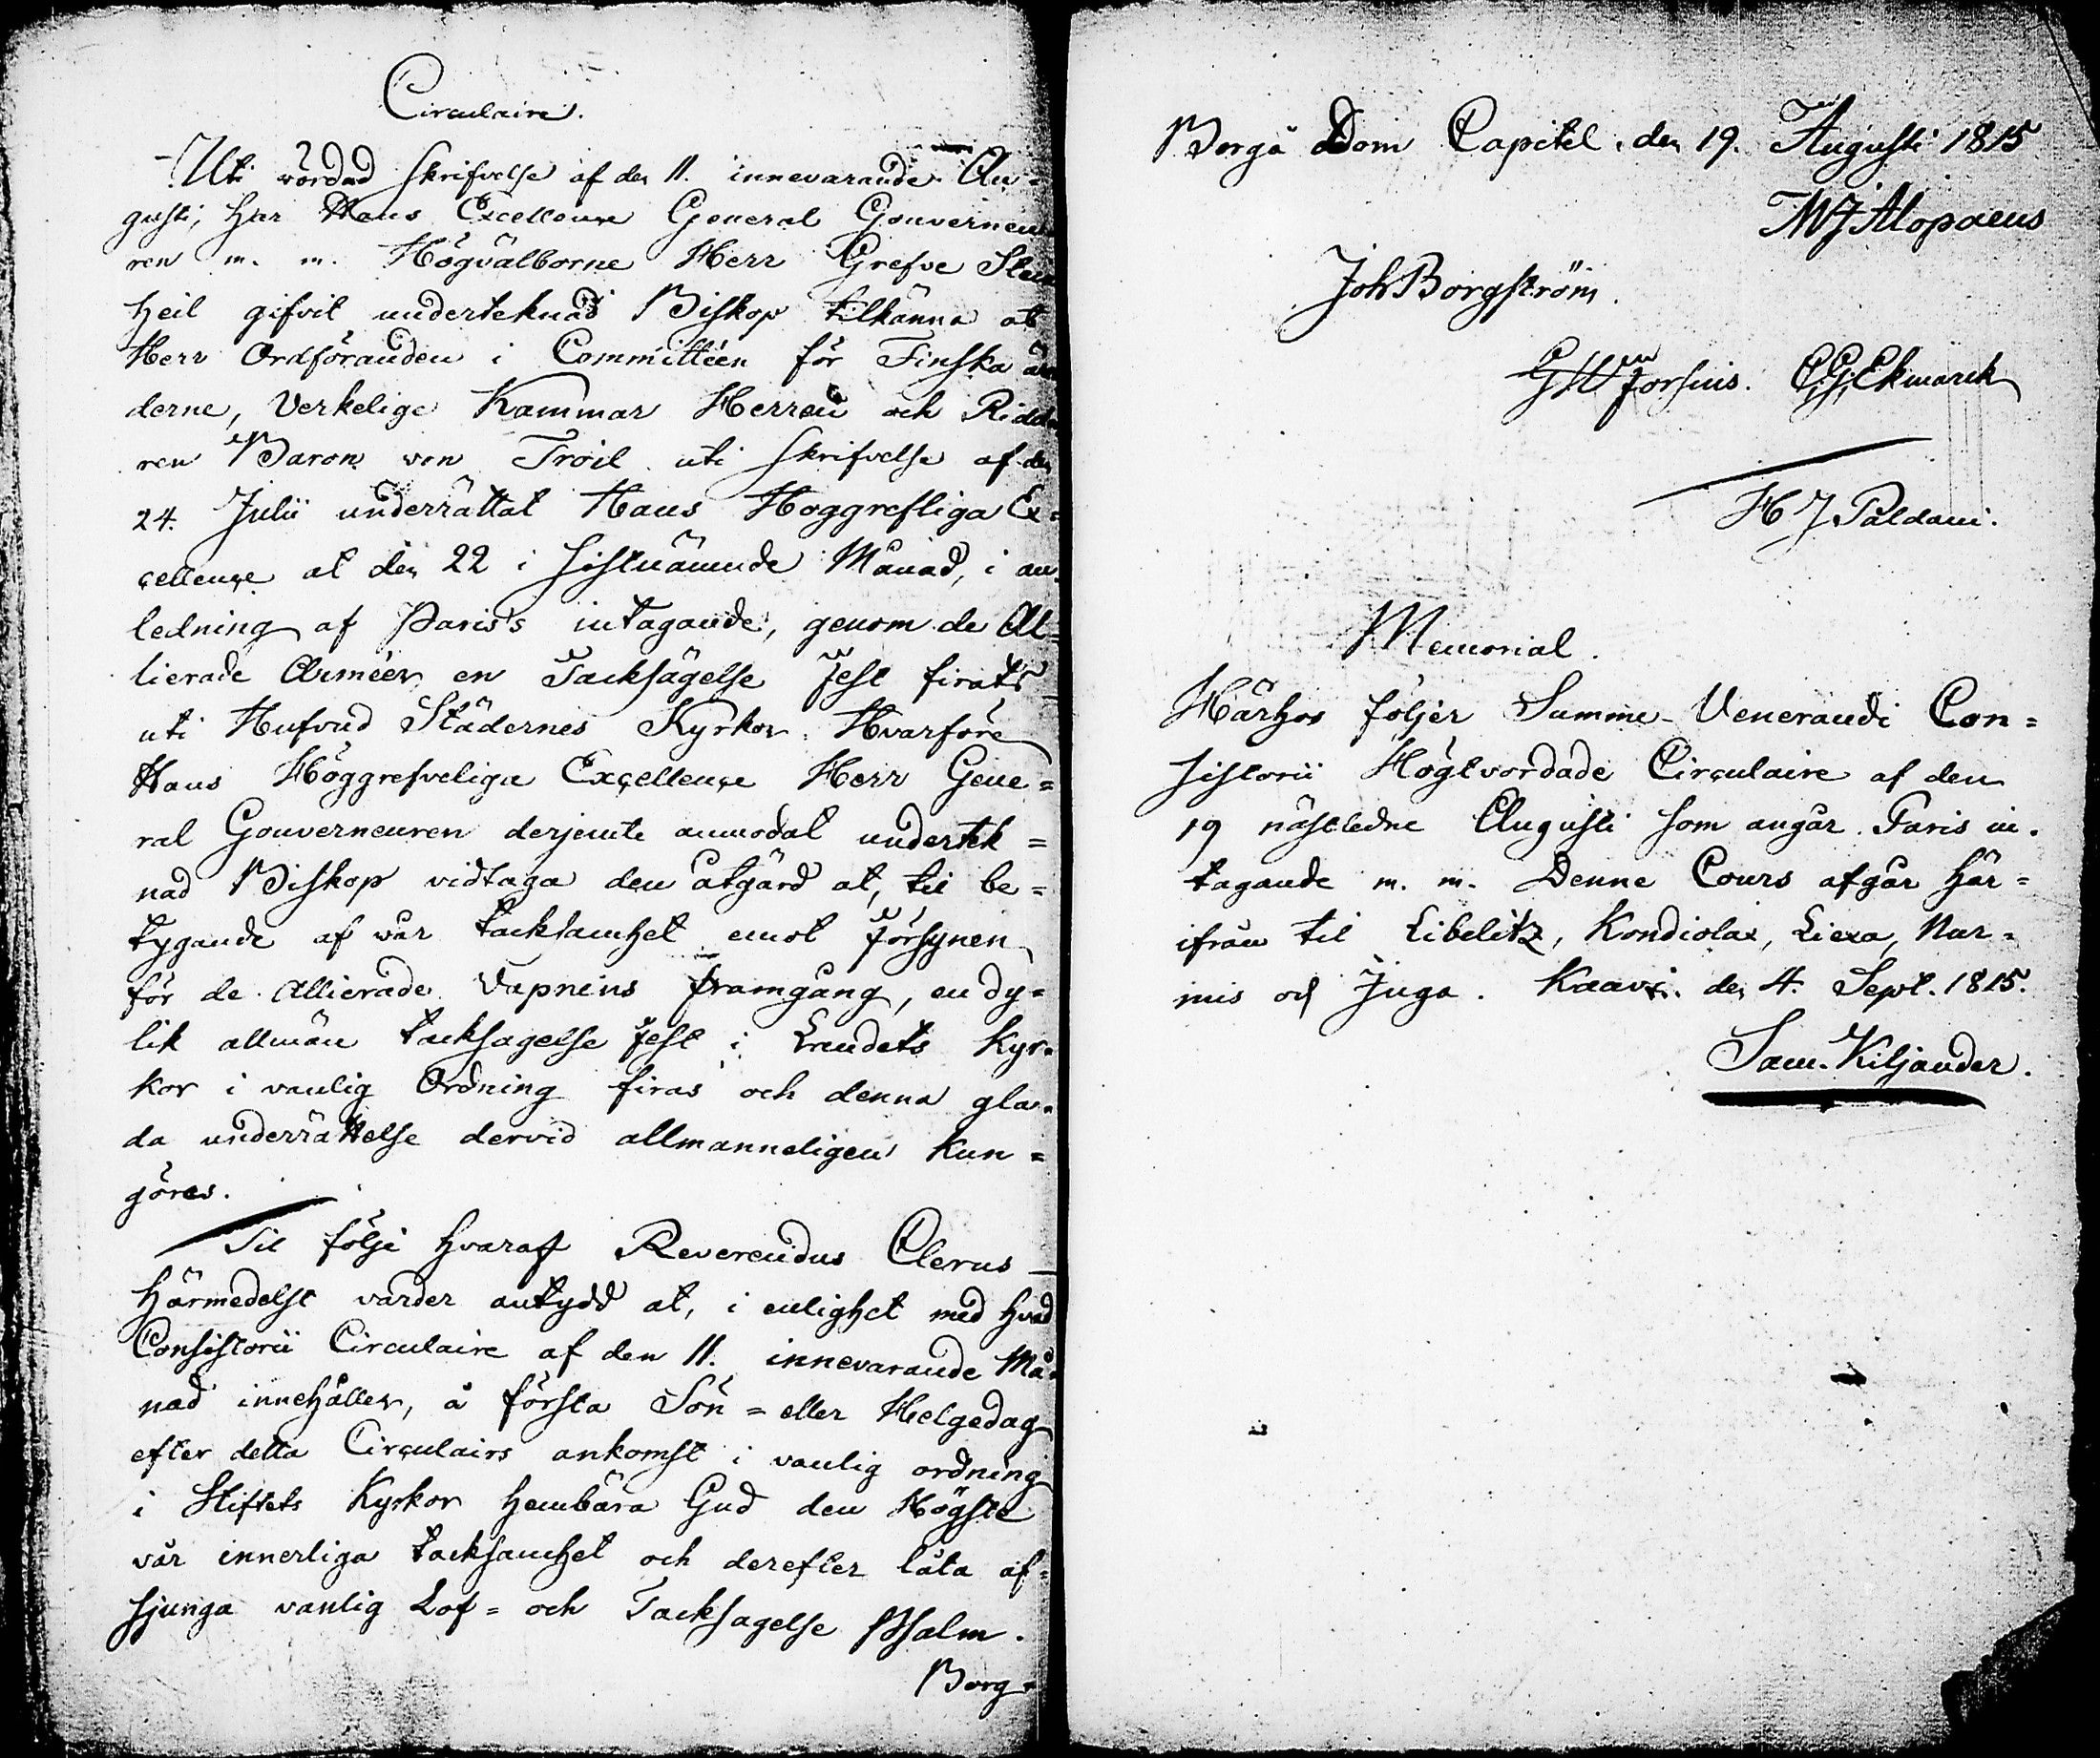 Circulaire.
Uti vördad skrifvelse af den 11. innevarande Au-
gusti, har Hans Excellence General Gouverneu
ren m. m. Högvälborne Herr Grefve Stein
heil gifvit underteknad Biskop tilkänna at
Herr Ordföranden i Committéen för Finska ären
derne, Verkelige Kammar Herren och Ridda
ren Baron von Troil uti skrifvelse af den
24. Julii underrättat Hans Höggrefliga Ex=
cellence at den 22 i sistnämnde Månad, i an=
ledning af Paris's intagande, genom de Al=
lierade Arméer en Tacksägelse Fest firats
uti Hufvud Städernes Kyrkor. Hvarföre
Hans Höggrefveliga Excellence Herr Gene=
ral Gouverneuren derjemte anmodat undertek=
nad Biskop vidtaga den åtgärd at, til be=
tygande af vår tacksamhet emot Försynen
för de Allierade Vapnens framgång, en dy=
lik allmän tacksägelse Fest i Landets Kyr=
kor i vanlig Ordning firas och denna gla=
da underrättelse dervid allmänneligen kun=
göres.
Til följe hvaraf Reverendus Clerus
härmedelst varder antydd at, i enlighet med hvad
Consistorii Circulaire af den 11. innevarande Må=
nad innehåller, å första Sön= eller Helgedag
efter detta Circulairs ankomst i vanlig ordning
i Stiftets Kyrkor hembära Gud den Högste
vår innerliga tacksamhet och derefter låta af=
sjunga vanlig Lof= och Tacksägelse Psalm.
Borg=
Borgå Dom Capitel, den 19. Augusti 1815
M J Alopaeus
Joh Borgström.
G W Forsius. C G Ekmarck
H J Paldani.
Memorial.
Härhos följer Summe Venerandi Con=
sistorii Högtvördade Circulaire af den
19 nästledne Augusti som angår Paris in=
tagande m. m. Denne Cours afgår här=
ifrån til Libelitz, Kondiolax, Liexa, Nur=
mis och Juga. Kaavi. den 4. Sept. 1815.
Sam. Kiljander.